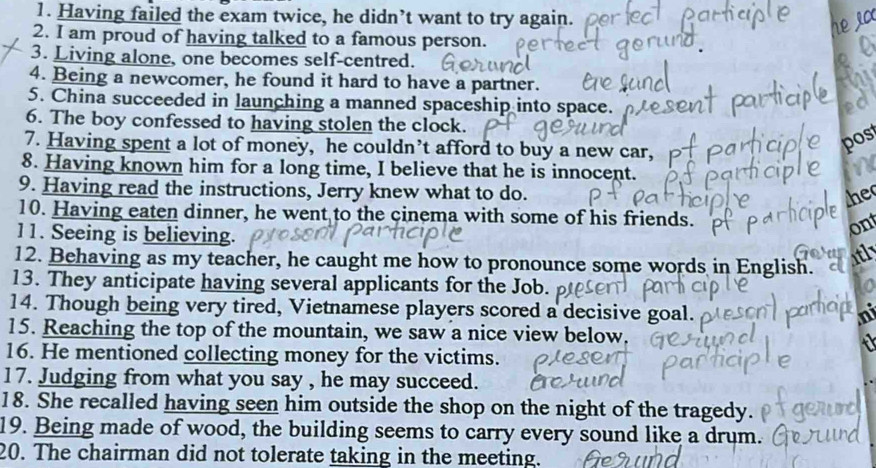 1. Having failed the exam twice, he didn't want to try again. perfect participle
2. I am proud of having talked to a famous person. perfect gerund.
3. Living alone, one becomes self-centred. Gerund
4. Being a newcomer, he found it hard to have a partner. Gerund
5. China succeeded in launching a manned spaceship into space. present participle
6. The boy confessed to having stolen the clock. pf gerund
7. Having spent a lot of money, he couldn't afford to buy a new car, pf participle
8. Having known him for a long time, I believe that he is innocent. pf participle
9. Having read the instructions, Jerry knew what to do. pf participle
10. Having eaten dinner, he went to the cinema with some of his friends. pf participle
11. Seeing is believing. present participle
12. Behaving as my teacher, he caught me how to pronounce some words in English.
13. They anticipate having several applicants for the Job. present participle
14. Though being very tired, Vietnamese players scored a decisive goal. present
15. Reaching the top of the mountain, we saw a nice view below. Gerund
16. He mentioned collecting money for the victims. present participle
17. Judging from what you say , he may succeed. Gerund
18. She recalled having seen him outside the shop on the night of the tragedy. pf gerund
19. Being made of wood, the building seems to carry every sound like a drum. Gerund
20. The chairman did not tolerate taking in the meeting. Gerund